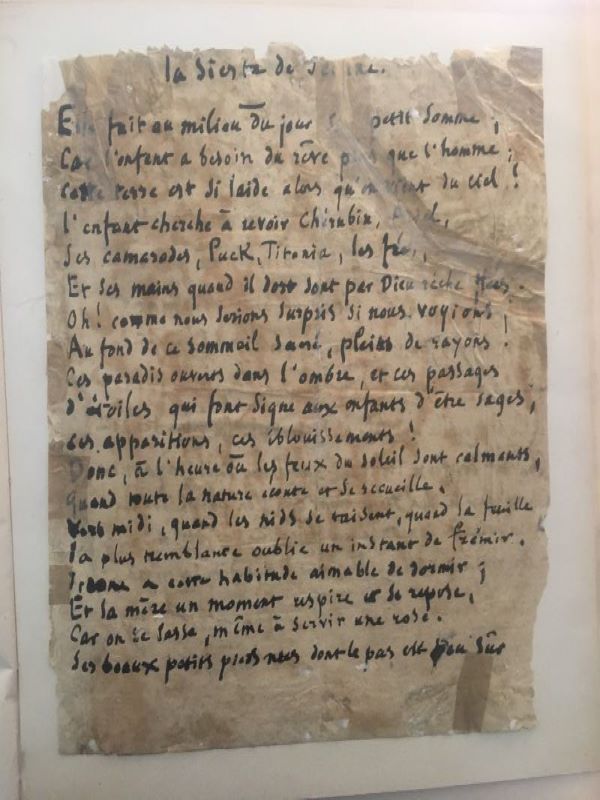 la Sieste de
Elle fait au milieu du jour petit Somme ;
Car l'enfant a besoin du rêve plus que l'homme ;
Cette terre est si laide alors qu'on vient du ciel !
l'enfant cherche à revoir Chérubin,
Ses camarades, Puck, Titania, les
Et ses mains quand il dort sont par Dieu
Oh ! comme nous serions surpris si nous voyions !
Au fond de ce sommeil sacré, pleins de rayons !
Ces paradis ouverts dans l'ombre, et ces passages
d'étoiles qui font signe aux enfants d'être sages,
ces apparitions, ces éblouissements !
Donc, à l'heure où les feux du soleil sont calmants,
quand toute la nature écoute et se recueille,
Vers midi, quand les nids se taisent, quand la feuille
la plus tremblante oublie un instant de frémir.
Jeanne a cette habitude aimable de dormir ;
Et la mère un moment respire et se repose,
Car on se lasse, même à servir une rose.
Ses beaux petits pieds nus dont le pas est peu sûr